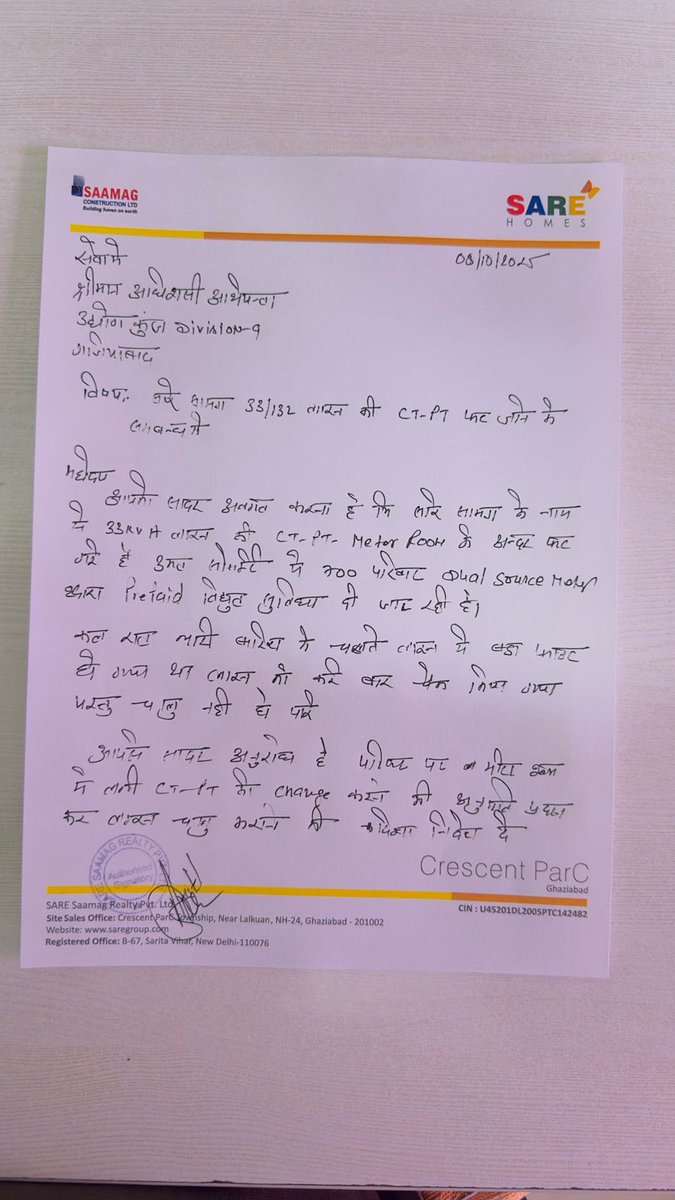 SAAMAG
CONSTRUCTION LTD
Building haven on earth
SARE
HOMES
सेवामे
08/10/2025
श्रीमान अधिशासी अभियन्ता
उद्योग कुंज Division-9
गाजियाबाद
विषय: सरे सामग 33/132 लाइन की CT-PT फट जाने के
सम्बन्ध मे
महोदय
आपको सादर अवगत कराना है कि सरे सामग के नाम
से 33KVA लाइन की CT-PT- Meter Room के अन्दर फट
गये है उक्त सोसाईटी मे 700 परिवार Dual Source Meter
द्वारा Prefaid विद्युत सुविधा दी जा रही है।
कल रात भारी बारिश के चलते लाइन मे बडा फाल्ट
हो गया था लाइन को कई बार चेक किया गया
परन्तु चालु नही हो पाई
आपसे सादर अनुरोध है पोल पर व मीटर रूम
मे लगी CT-PT को change करने की अनुमति प्रदान
कर लाइन चालु कराने की दिशा निर्देश दे
SARE SAAMAG REALTY PVT. LTD.
Authorised
Signatory
Crescent ParC
Ghaziabad
SARE Saamag Realty Pvt. Ltd.
CIN : U45201DL2005PTC142482
Site Sales Office: Crescent ParC Township, Near Lalkuan, NH-24, Ghaziabad - 201002
Website: www.saregroup.com
Registered Office: B-67, Sarita Vihar, New Delhi-110076